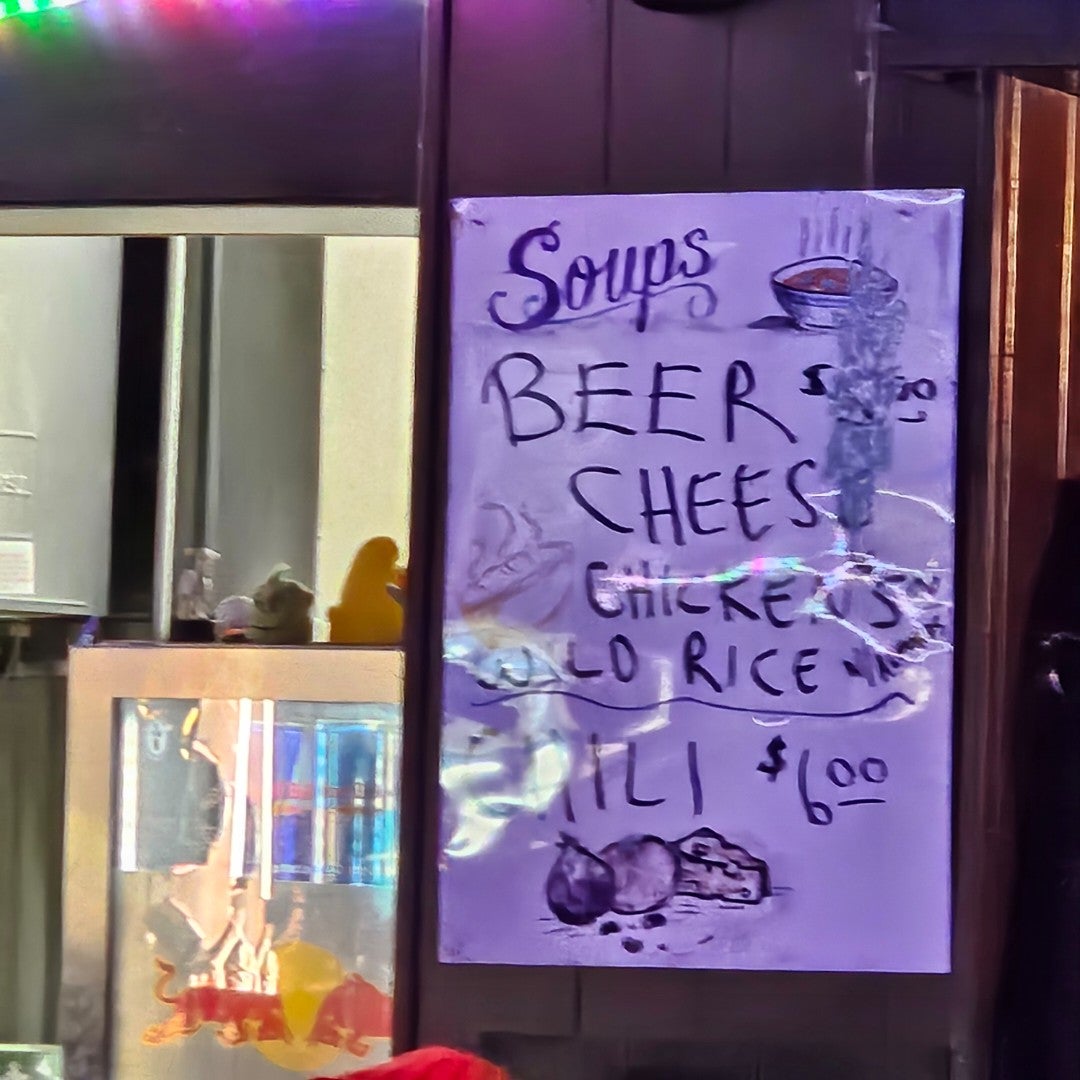 Soups
BEER $
CHEES
CHICKEN
WILD RICE
$6.00